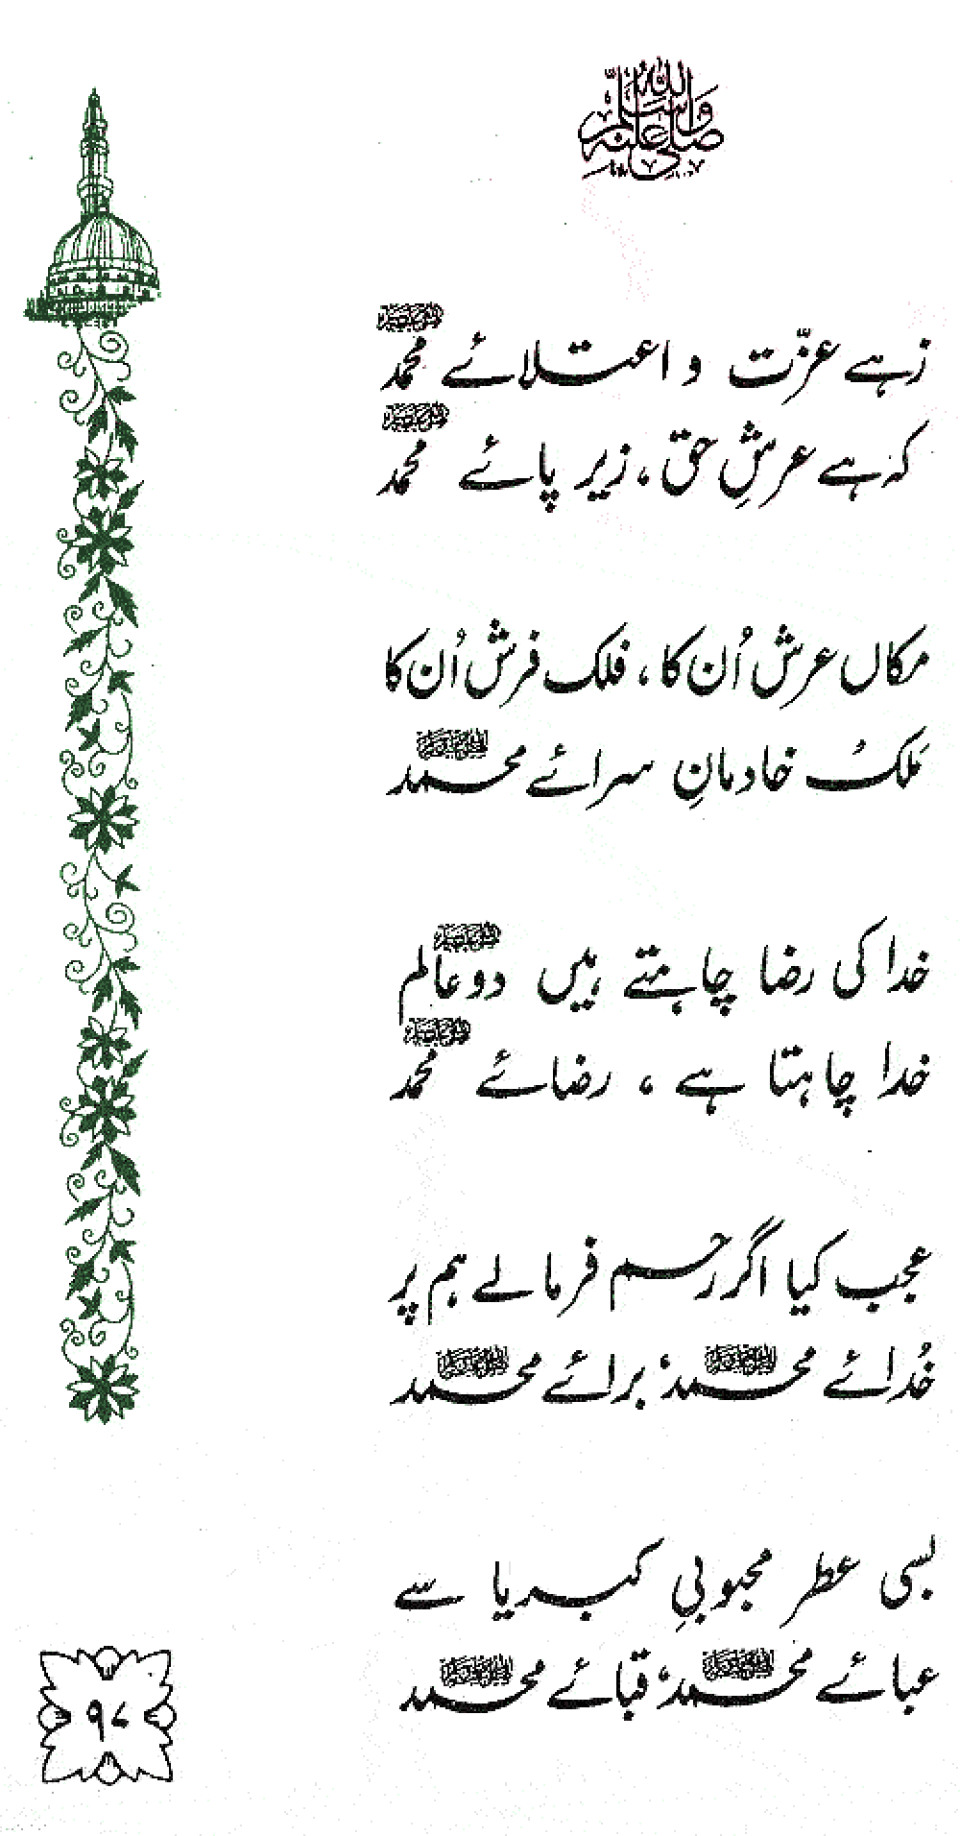 صلی اللہ علیہ وسلم
زہے عزّت و اعتلائے محمد ﷺ
کہ ہے عرشِ حق ، زیر پائے محمد ﷺ
مکاں عرش اُن کا ، فلک فرش اُن کا
مَلک خادمانِ سرائے محمد ﷺ
خدا کی رضا چاہتے ہیں دو عالم ﷺ
خدا چاہتا ہے ، رضائے محمد ﷺ
عجب کیا اگر رحم فرمالے ہم پر
خُدائے محمد ﷺ، برائے محمد ﷺ
بسی عطر محبوبیِ کبریا سے
عبائے محمد ﷺ، قبائے محمد ﷺ
۹۷